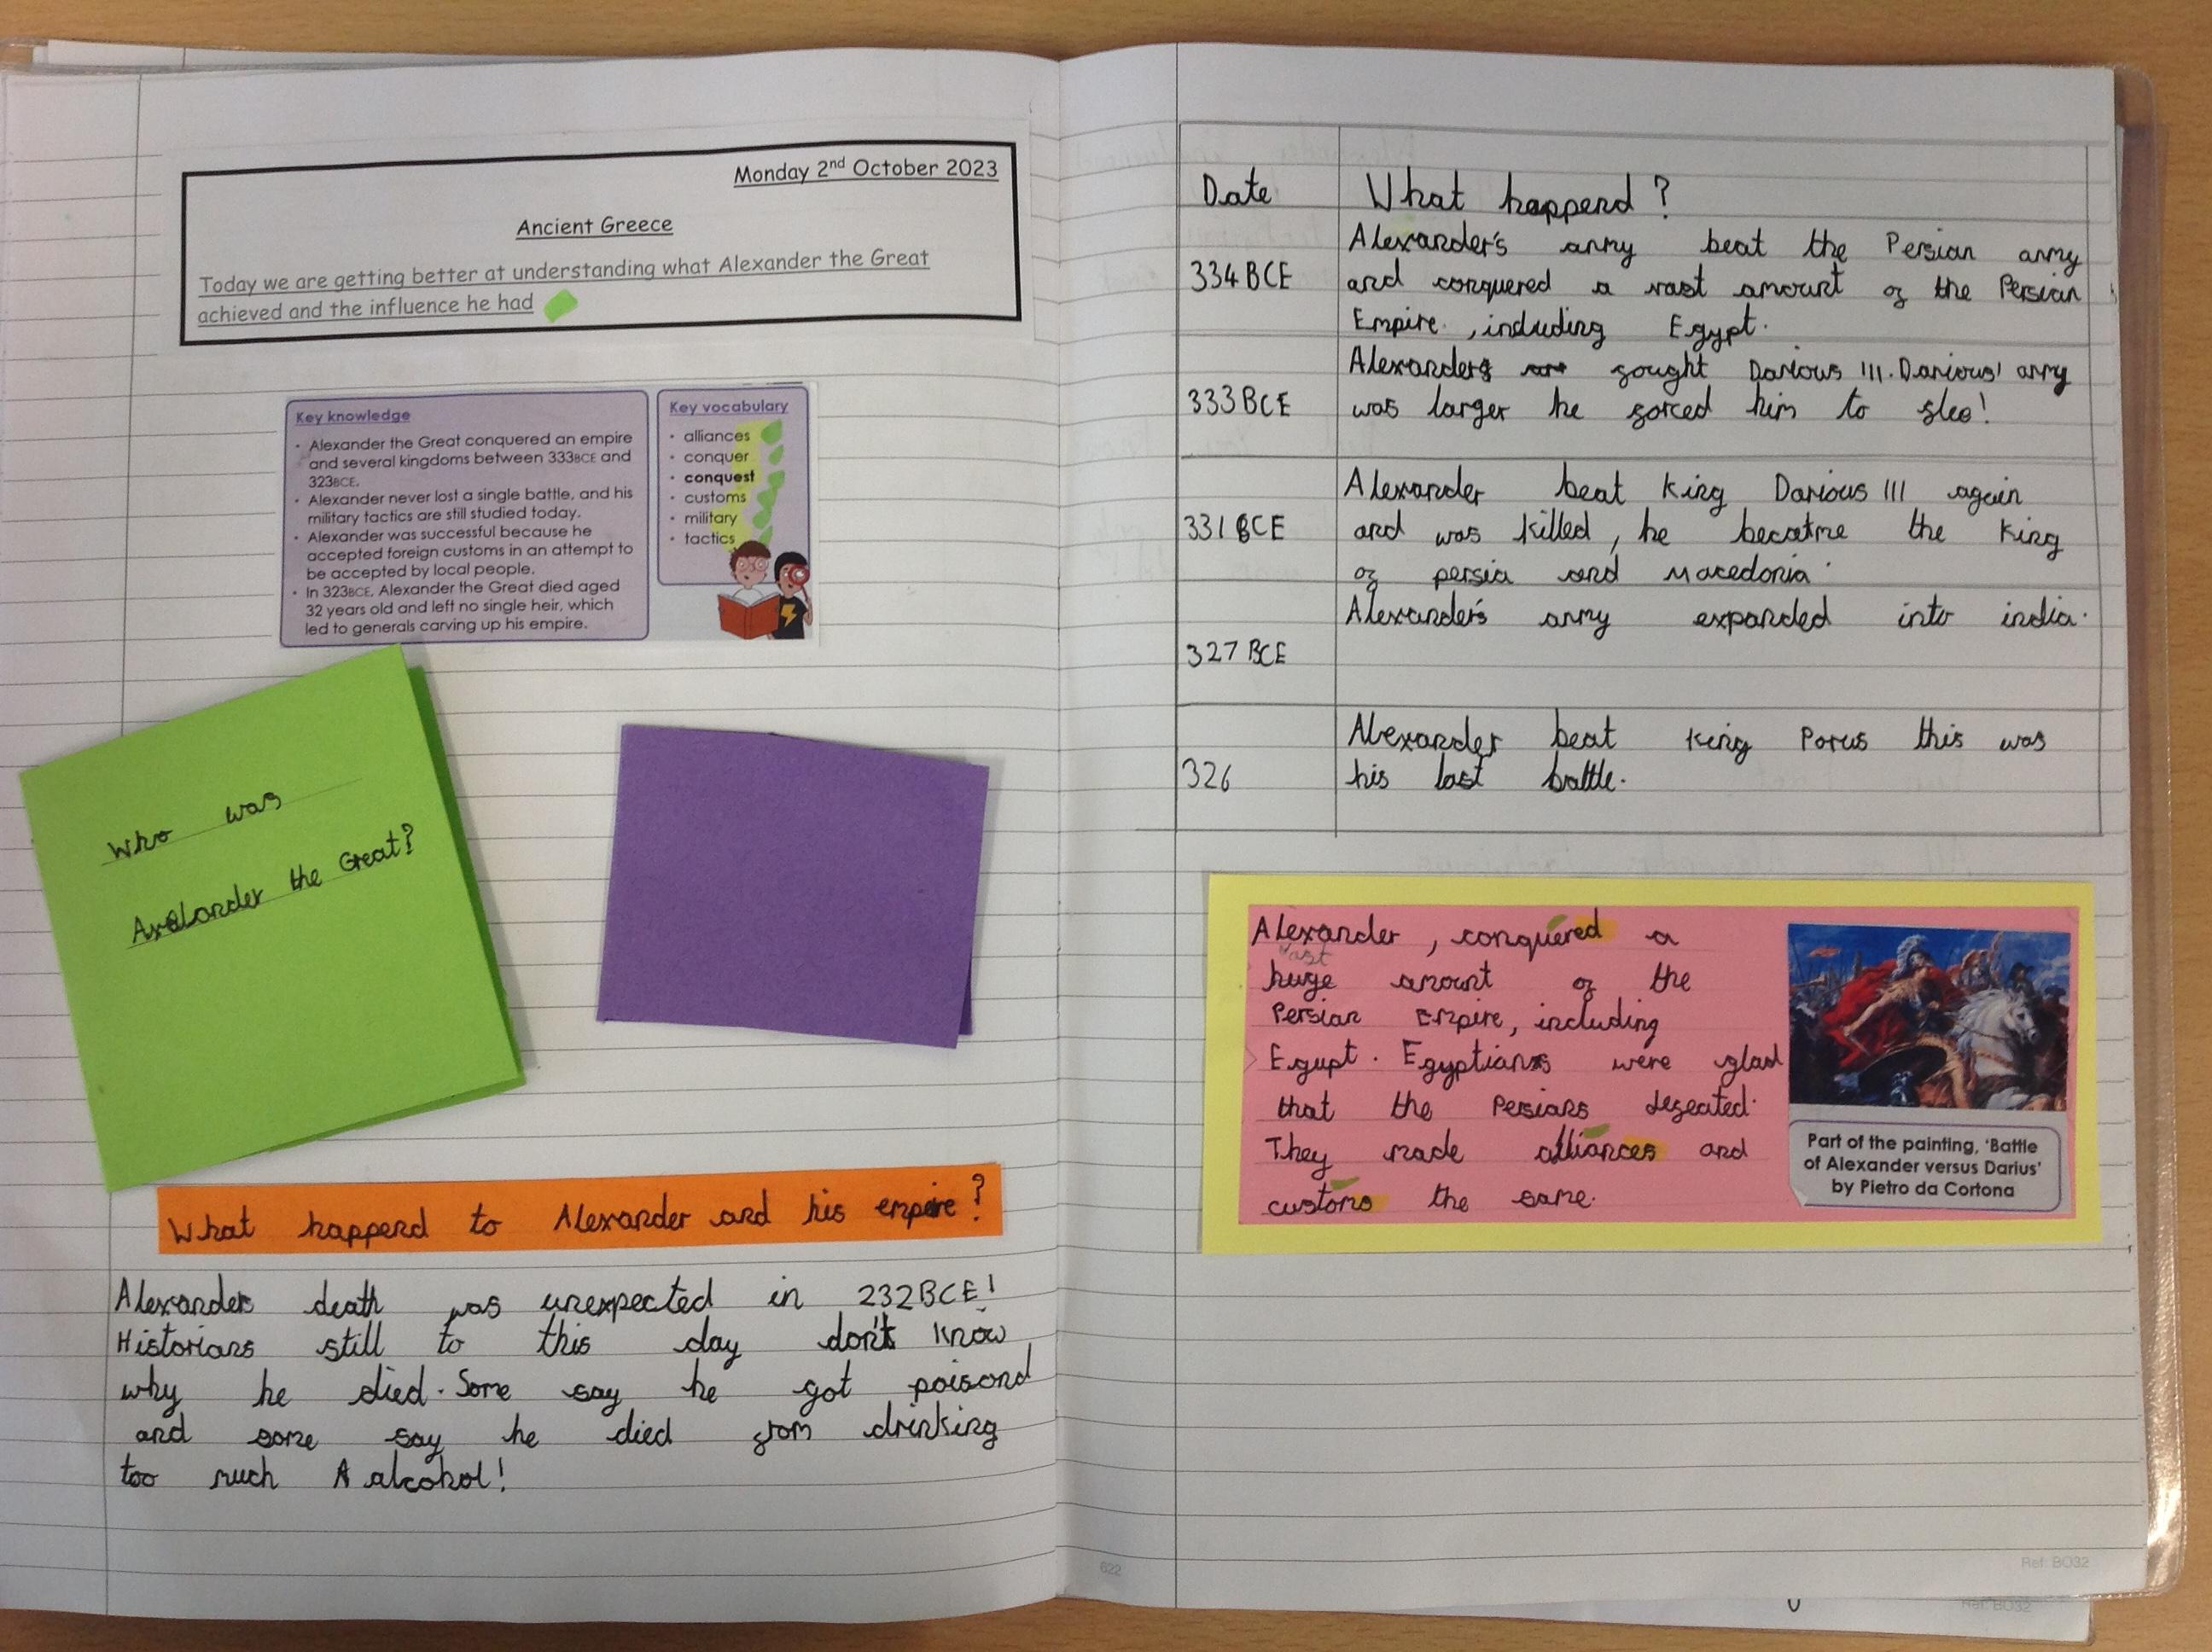 Monday 2nd October 2023
Ancient Greece
Today we are getting better at understanding what Alexander the Great
achieved and the influence he had
Key knowledge
• Alexander the Great conquered an empire
and several kingdoms between 333BCE and
323BCE.
• Alexander never lost a single battle, and his
military tactics are still studied today.
• Alexander was successful because he
accepted foreign customs in an attempt to
be accepted by local people.
• In 323BCE, Alexander the Great died aged
32 years old and left no single heir, which
led to generals carving up his empire.
Key vocabulary
• alliances
• conquer
• conquest
• customs
• military
• tactics
Who was
Axelander the Great?
What happend to Alexander and his empire?
Alexander death was unexpected in 232BCE!
Historians still to this day don't know
why he died. Some say he got poisond
and some say he died from drinking
too much A alcohol!
622
Date What happend?
Alexander's army beat the Persian army
334 BCE and conquered a vast amount of the Persian
Empire, including Egypt.
Alexander fought Darious III. Darious' army
333 BCE was larger he forced him to flee!
Alexander beat King Darious III again
331 BCE and was killed, he became the King
of persia and Macedonia.
Alexander's army expanded into india.
327 BCE
Alexander beat King Porus this was
326 his last battle.
Alexander, conquered a
vast
huge amount of the
Persian Empire, including
Egupt. Egyptians were glad
that the Persians defeated.
They made alliances and
customs the same.
Part of the painting, 'Battle
of Alexander versus Darius'
by Pietro da Cortona
Ref: BO32
Ref: BO32